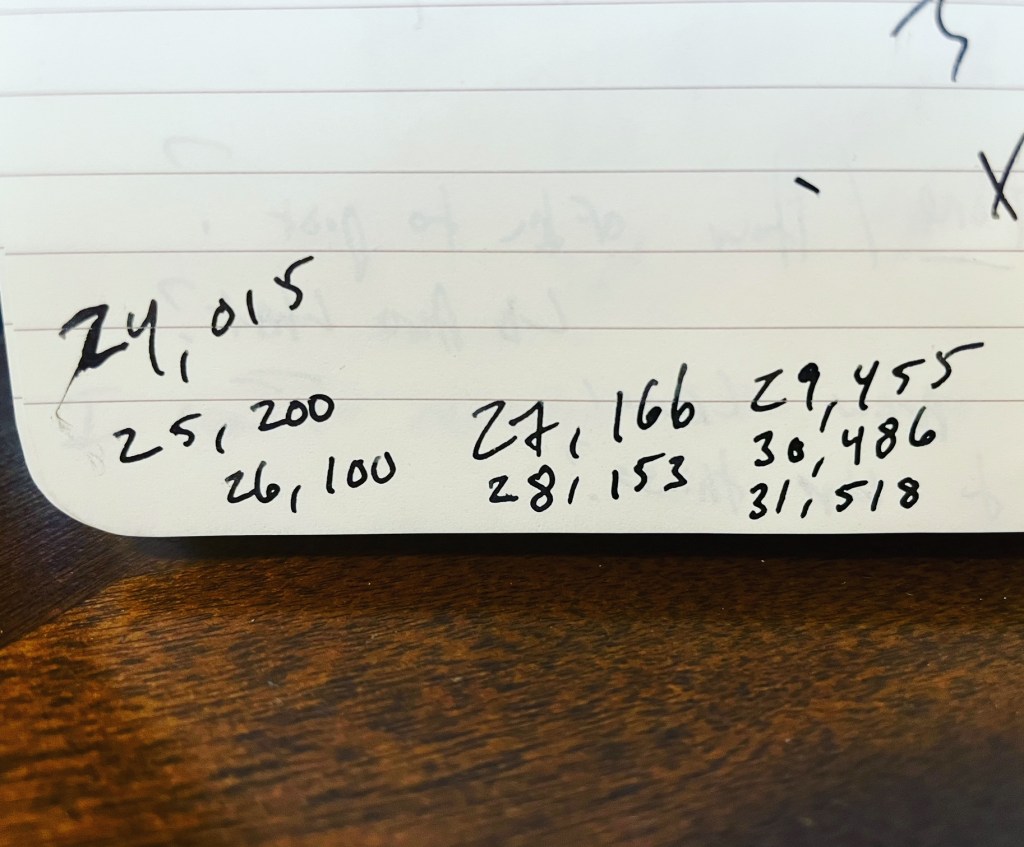 24,015
25,200
26,100
27,166
28,153
29,455
30,486
31,518
X